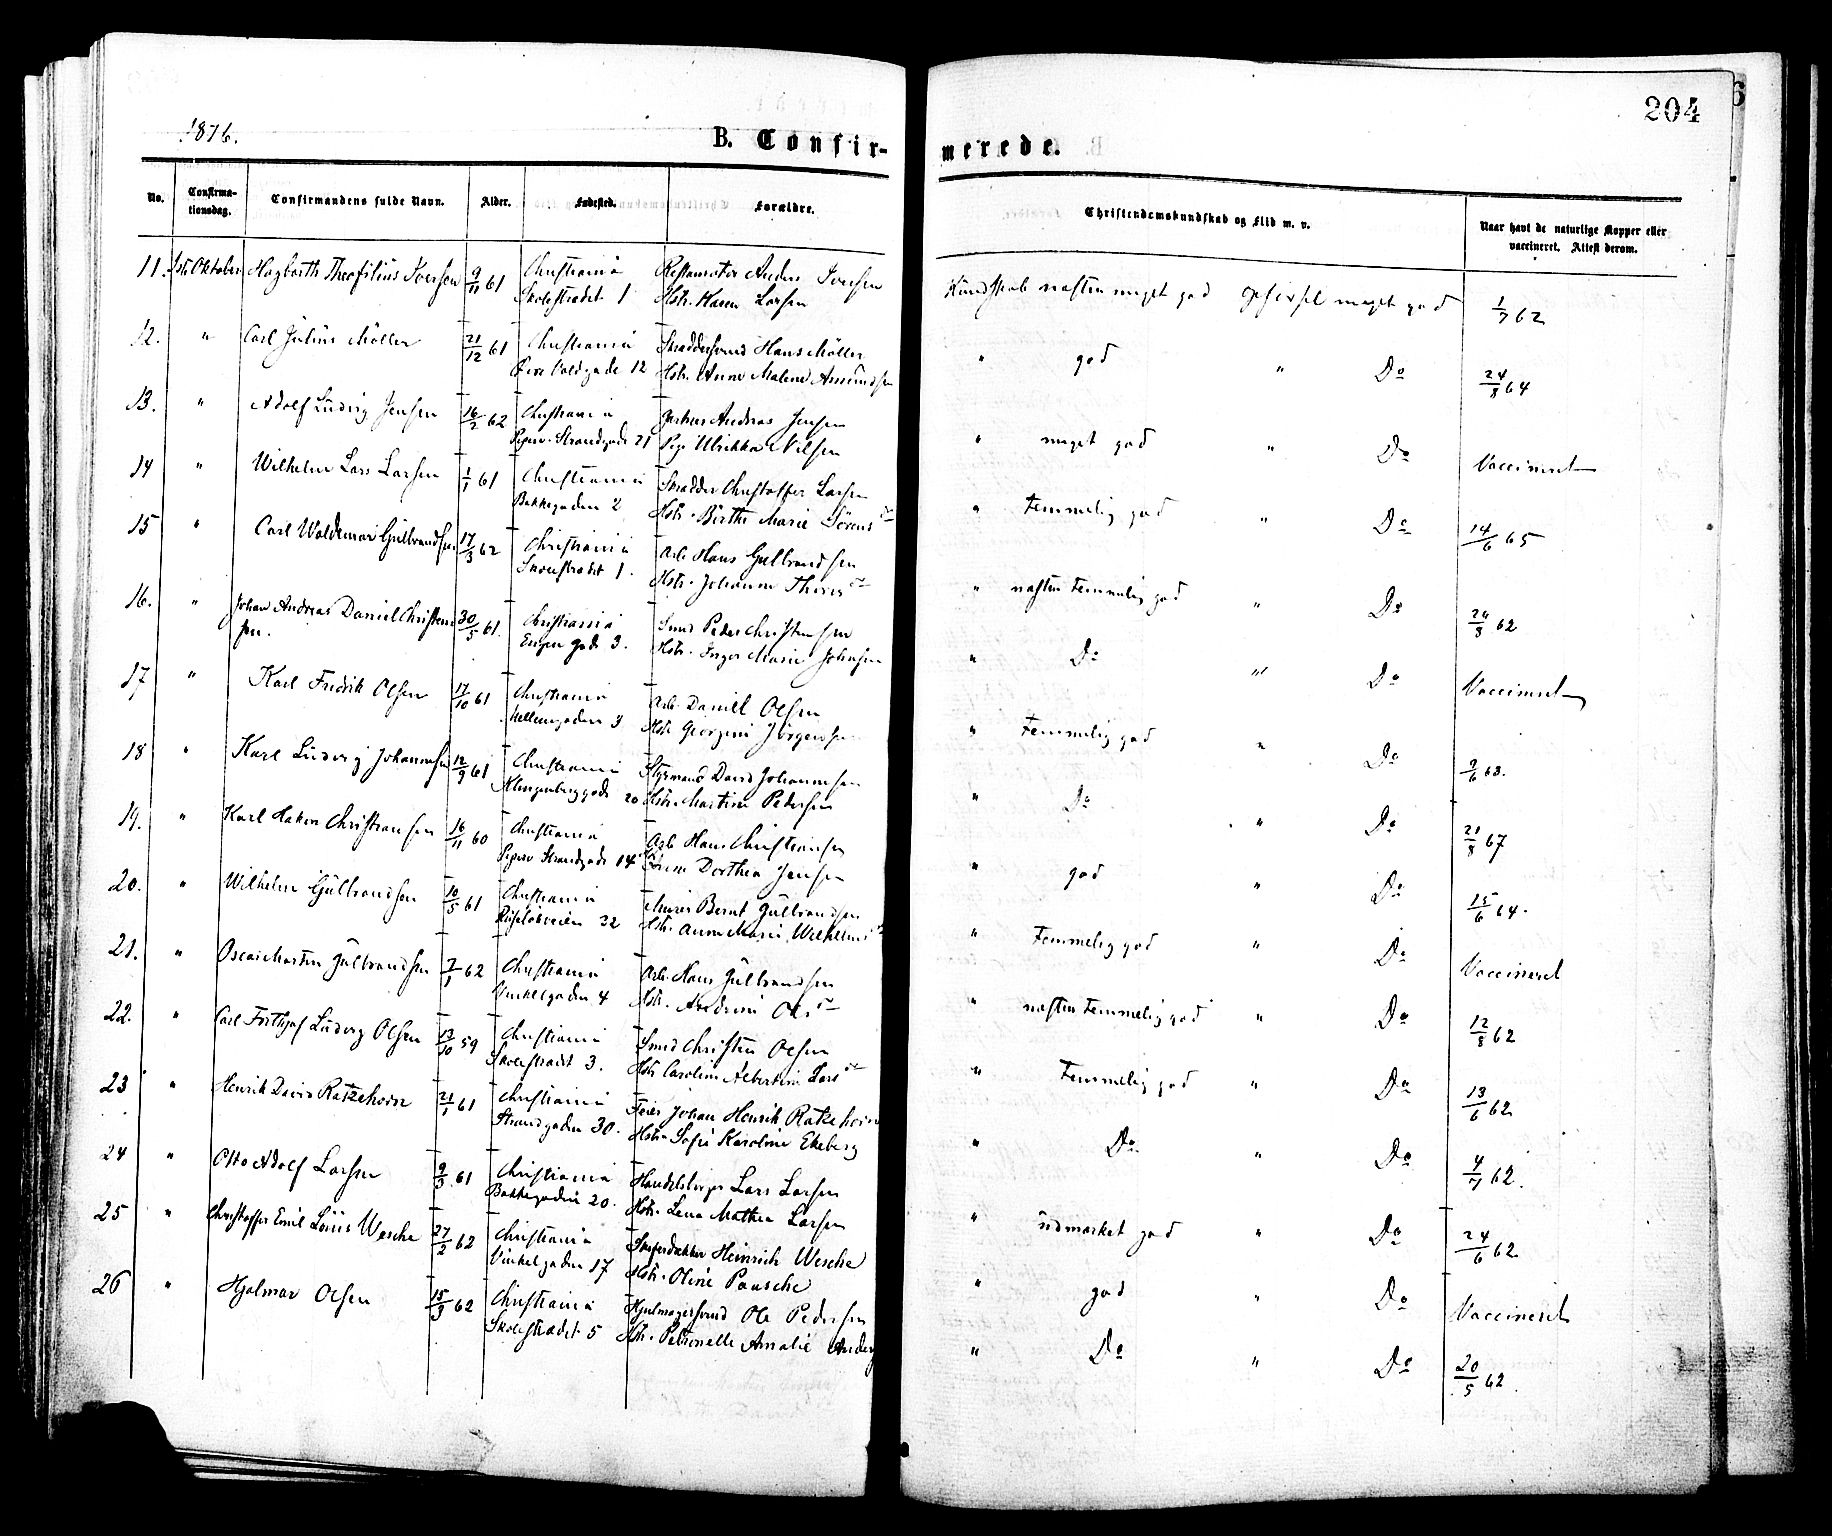 1876.
204
B. Confir-
merede.
No.
Confirma-
tionsdag.
Confirmandens fulde Navn.
Alder.
Fødested.
Forældre.
Christendomskundskab og Flid m. v.
Naar havt de naturlige Kopper eller
vaccineret. Attest derom.
11. 1ste Oktober Hagbarth Theofilius Iversen 9/11 61 Christiania Anders Iversen
Skolestrædet 1 Hstr. Karen Larsen
Kundskab næsten meget god Opførsel meget god 1/7 62
12. " Carl Julius Møller 21/12 61 Christiania Skræddersvend Hans Møller
Øvre Voldgade 12 Hstr. Anne Malene Amundsen
" god " Do 24/8 64
13. " Adolf Ludvig Jensen 16/2 62 Christiania Andreas Jensen
Piperv. Strandgade 21 Pige Ulrikka Nilsen
" meget god " Do Vaccineret
14 " Wilhelm Lars Larsen 1/1 61 Christiania Skrædder Christoffer Larsen
Bakkegaden 2 Hstr. Birthe Marie Sørensdr
" Temmelig god " Do 14/6 65
15 " Carl Waldemar Gulbrandsen 17/3 62 Christiania Arb. Hans Gulbrandsen
Skolestrædet 1. Hstr. Johanne
" næsten Temmelig god " Do 24/8 62
16. " Johan Andreas Daniel Christen- 30/5 61. Christiania Smed Peder Christensen
sen. Engen gade 3. Hstr. Inger Marie Johnsen
" Do " Do Vaccineret
17 " Karl Fredrik Olsen 17/10 61 Christiania Arb. Daniel Olsen
Mellemgaden 3 Hstr. Georgine Jörgensen
" Temmelig god " Do 9/6 63.
18 " Karl Ludvig Johannesen 12/9 61 Christiania Styrmand David Johannesen
Klingenberggade 20 Hstr. Martine Pedersen
" Do " Do 21/8 67
19. " Karl Hakon Christiansen 16/11 60 Christiania Arb. Hans Christiansen
Piperv. Strandgade 14 Dorthea Jensen
" god " Do 15/6 64.
20. " Wilhelm Gulbrandsen 10/5 61 Christiania Murer Bernt Gulbrandsen
Ruseløkveien 32 Hstr. Anne Marie Wilhelmsdr
" Temmelig god " Do Vaccineret
21. " Oscar Martin Gulbrandsen 7/1 62 Christiania Arb. Hans Gulbrandsen
Vinkelgaden 4 Hstr. Andrine Olsdr
" næsten Temmelig god " Do 12/8 62
22. " Carl Frithjof Ludvig Olsen 13/10 59 Christiania Smed Christen Olsen
Skolestrædet 3. Hstr. Caroline Albertine Larsdr
" Temmelig god " Do 13/6 62
23 " Henrik David Ratzehorn 21/1 61 Christiania Feier Johan Henrik Ratzehorn
Strandgaden 30. Hstr. Sofie Karoline Ekeberg
" Do " Do 4/7 62.
24 " Otto Adolf Larsen 9/3 61 Christiania Handelsborger Lars Larsen
Bakkegaden 20. Hstr. Lena Mathea Larsen
" udmærket god " Do 24/6 62
25 " Christoffer Emil Louis Wesche 27/2 62 Christiania Skiferdækker Heinrich Wesche
Vinkelgaden 17 Hstr. Oline Paasche
" god " Do Vaccineret
26 " Hjalmar Olsen 15/3 62 Christiania Hjulmagersvend Ole Pedersen
Skolestrædet 5 Hstr. Petronelle Amalie
" Do " Do 20/5 62.